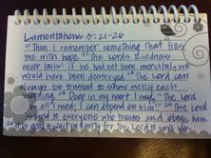 Lamentations 3:21-26
"Then I remember something that fills
me with hope. 22 The Lord's kindness
never fails! If he had not been merciful, we
would have been destroyed. 23 The Lord can
always be trusted to show mercy each
morning. 24 Deep in my heart I say, "The Lord
is all I need; I can depend on him!" 25 The Lord
is kind to everyone who trusts and obeys him.
26 It is good to wait patiently for the Lord to save you.